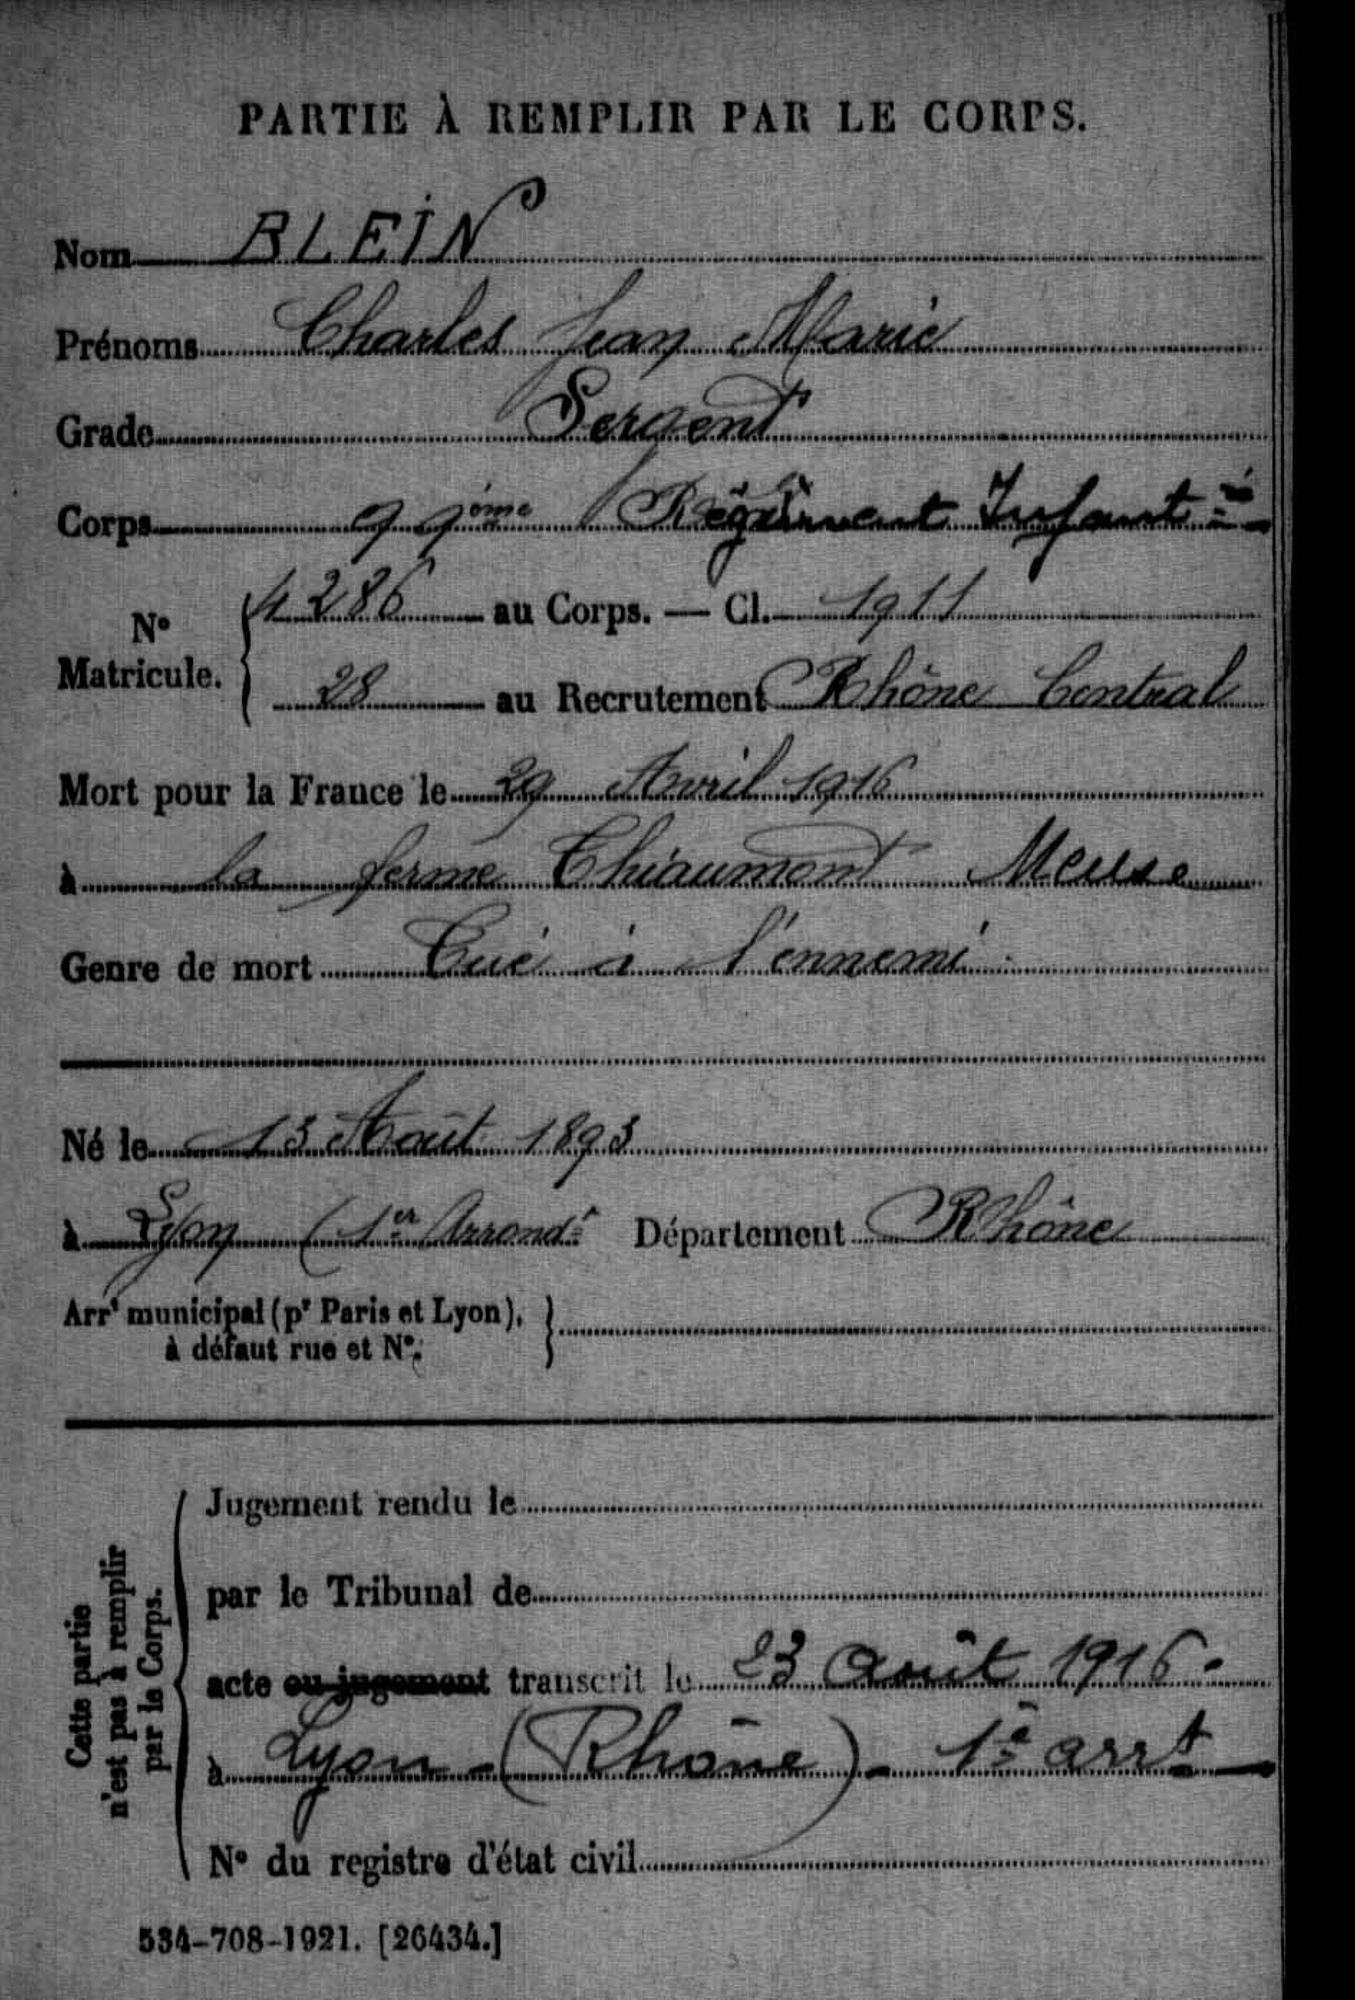 PARTIE À REMPLIR PAR LE CORPS.
Nom BLEIN
Prénoms Charles Jean Marie
Grade Sergent
Corps 99ème Régiment Infantie
N° Matricule. 4286 au Corps. — Cl. 1911
28 au Recrutement Rhône Central
Mort pour la France le 29 Avril 1916
à la ferme Thiaumont Meuse
Genre de mort Tué à l'ennemi
Né le 13 Août 1893
à Lyon (1er Arrondt Département Rhône
Arrt municipal (pr Paris et Lyon),
à défaut rue et N°.
Cette partie
n'est pas à remplir
par le Corps.
Jugement rendu le
par le Tribunal de
acte ou jugement transcrit le 23 août 1916.
à Lyon - (Rhône) - 1e arrt
N° du registre d'état civil
534-708-1921. [26434.]